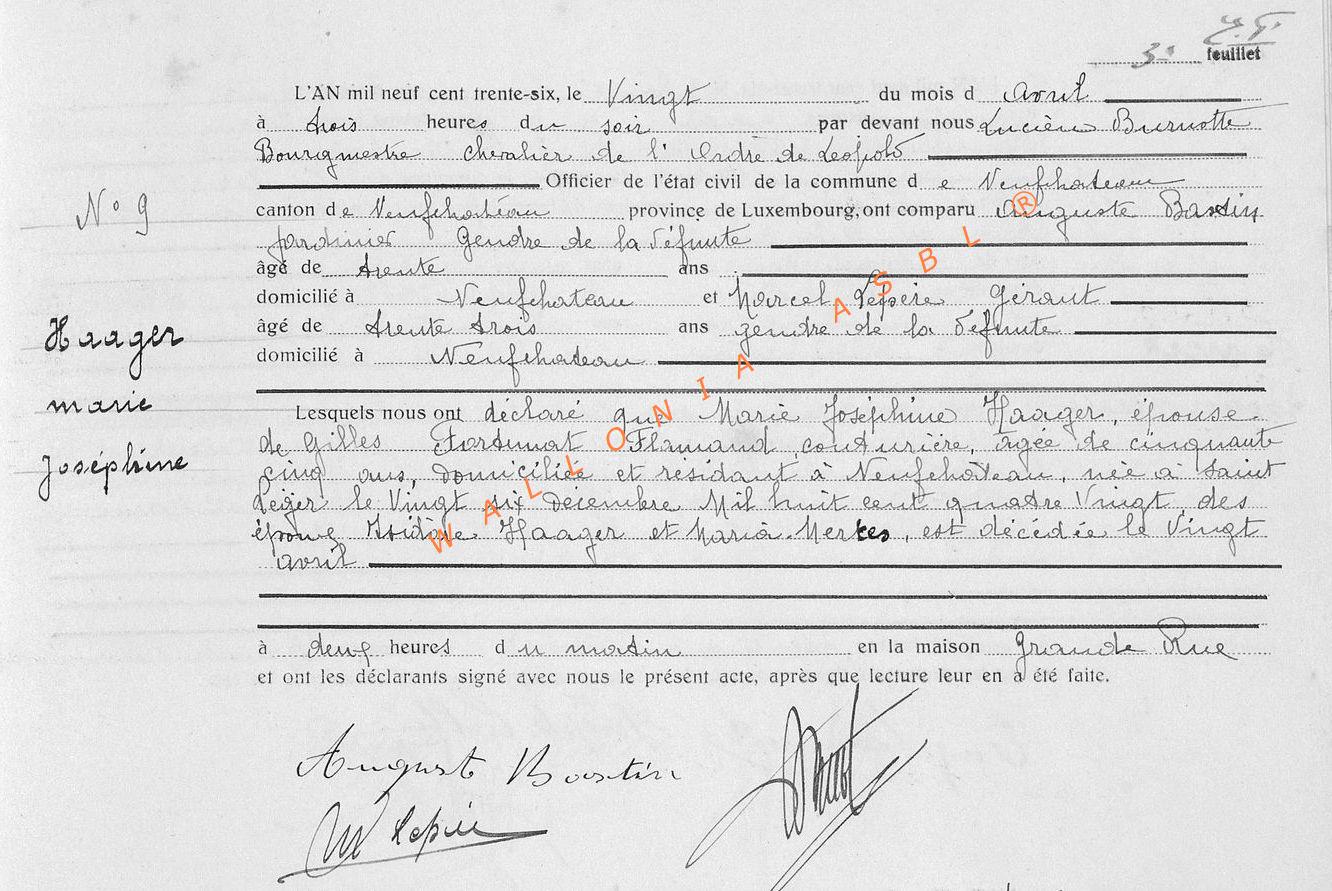 3e feuillet
L'AN mil neuf cent trente-six, le Vingt du mois d avril
à trois heures du soir par devant nous Lucien Burnotte
Bourgmestre chevalier de l'Ordre de Leopold
Officier de l'état civil de la commune d e Neufchateau
N° 9
canton de Neufchateau province de Luxembourg, ont comparu Auguste Bastin
jardinier Gendre de la défunte
âgé de trente ans
domicilié à Neufchateau et Marcel Lepère Gérant
âgé de trente trois ans gendre de la défunte
domicilié à Neufchateau
Haager
marie
Joséphine
Lesquels nous ont déclaré que Marie Joséphine Haager, épouse
de Gilles Fortunat Flamand, couturière, agée de cinquante
cinq ans, domiciliée et residant à Neufchâteau, née à Saint
Léger le Vingt six décembre Mil huit cent quatre Vingt, des
époux Isidore Haager et Maria Merkes, est décédée le Vingt
avril
à deux heures d u matin en la maison Grande Rue
et ont les déclarants signé avec nous le présent acte, après que lecture leur en a été faite.
Auguste Bastin
M Lepère
WALLONIA ASBL ®